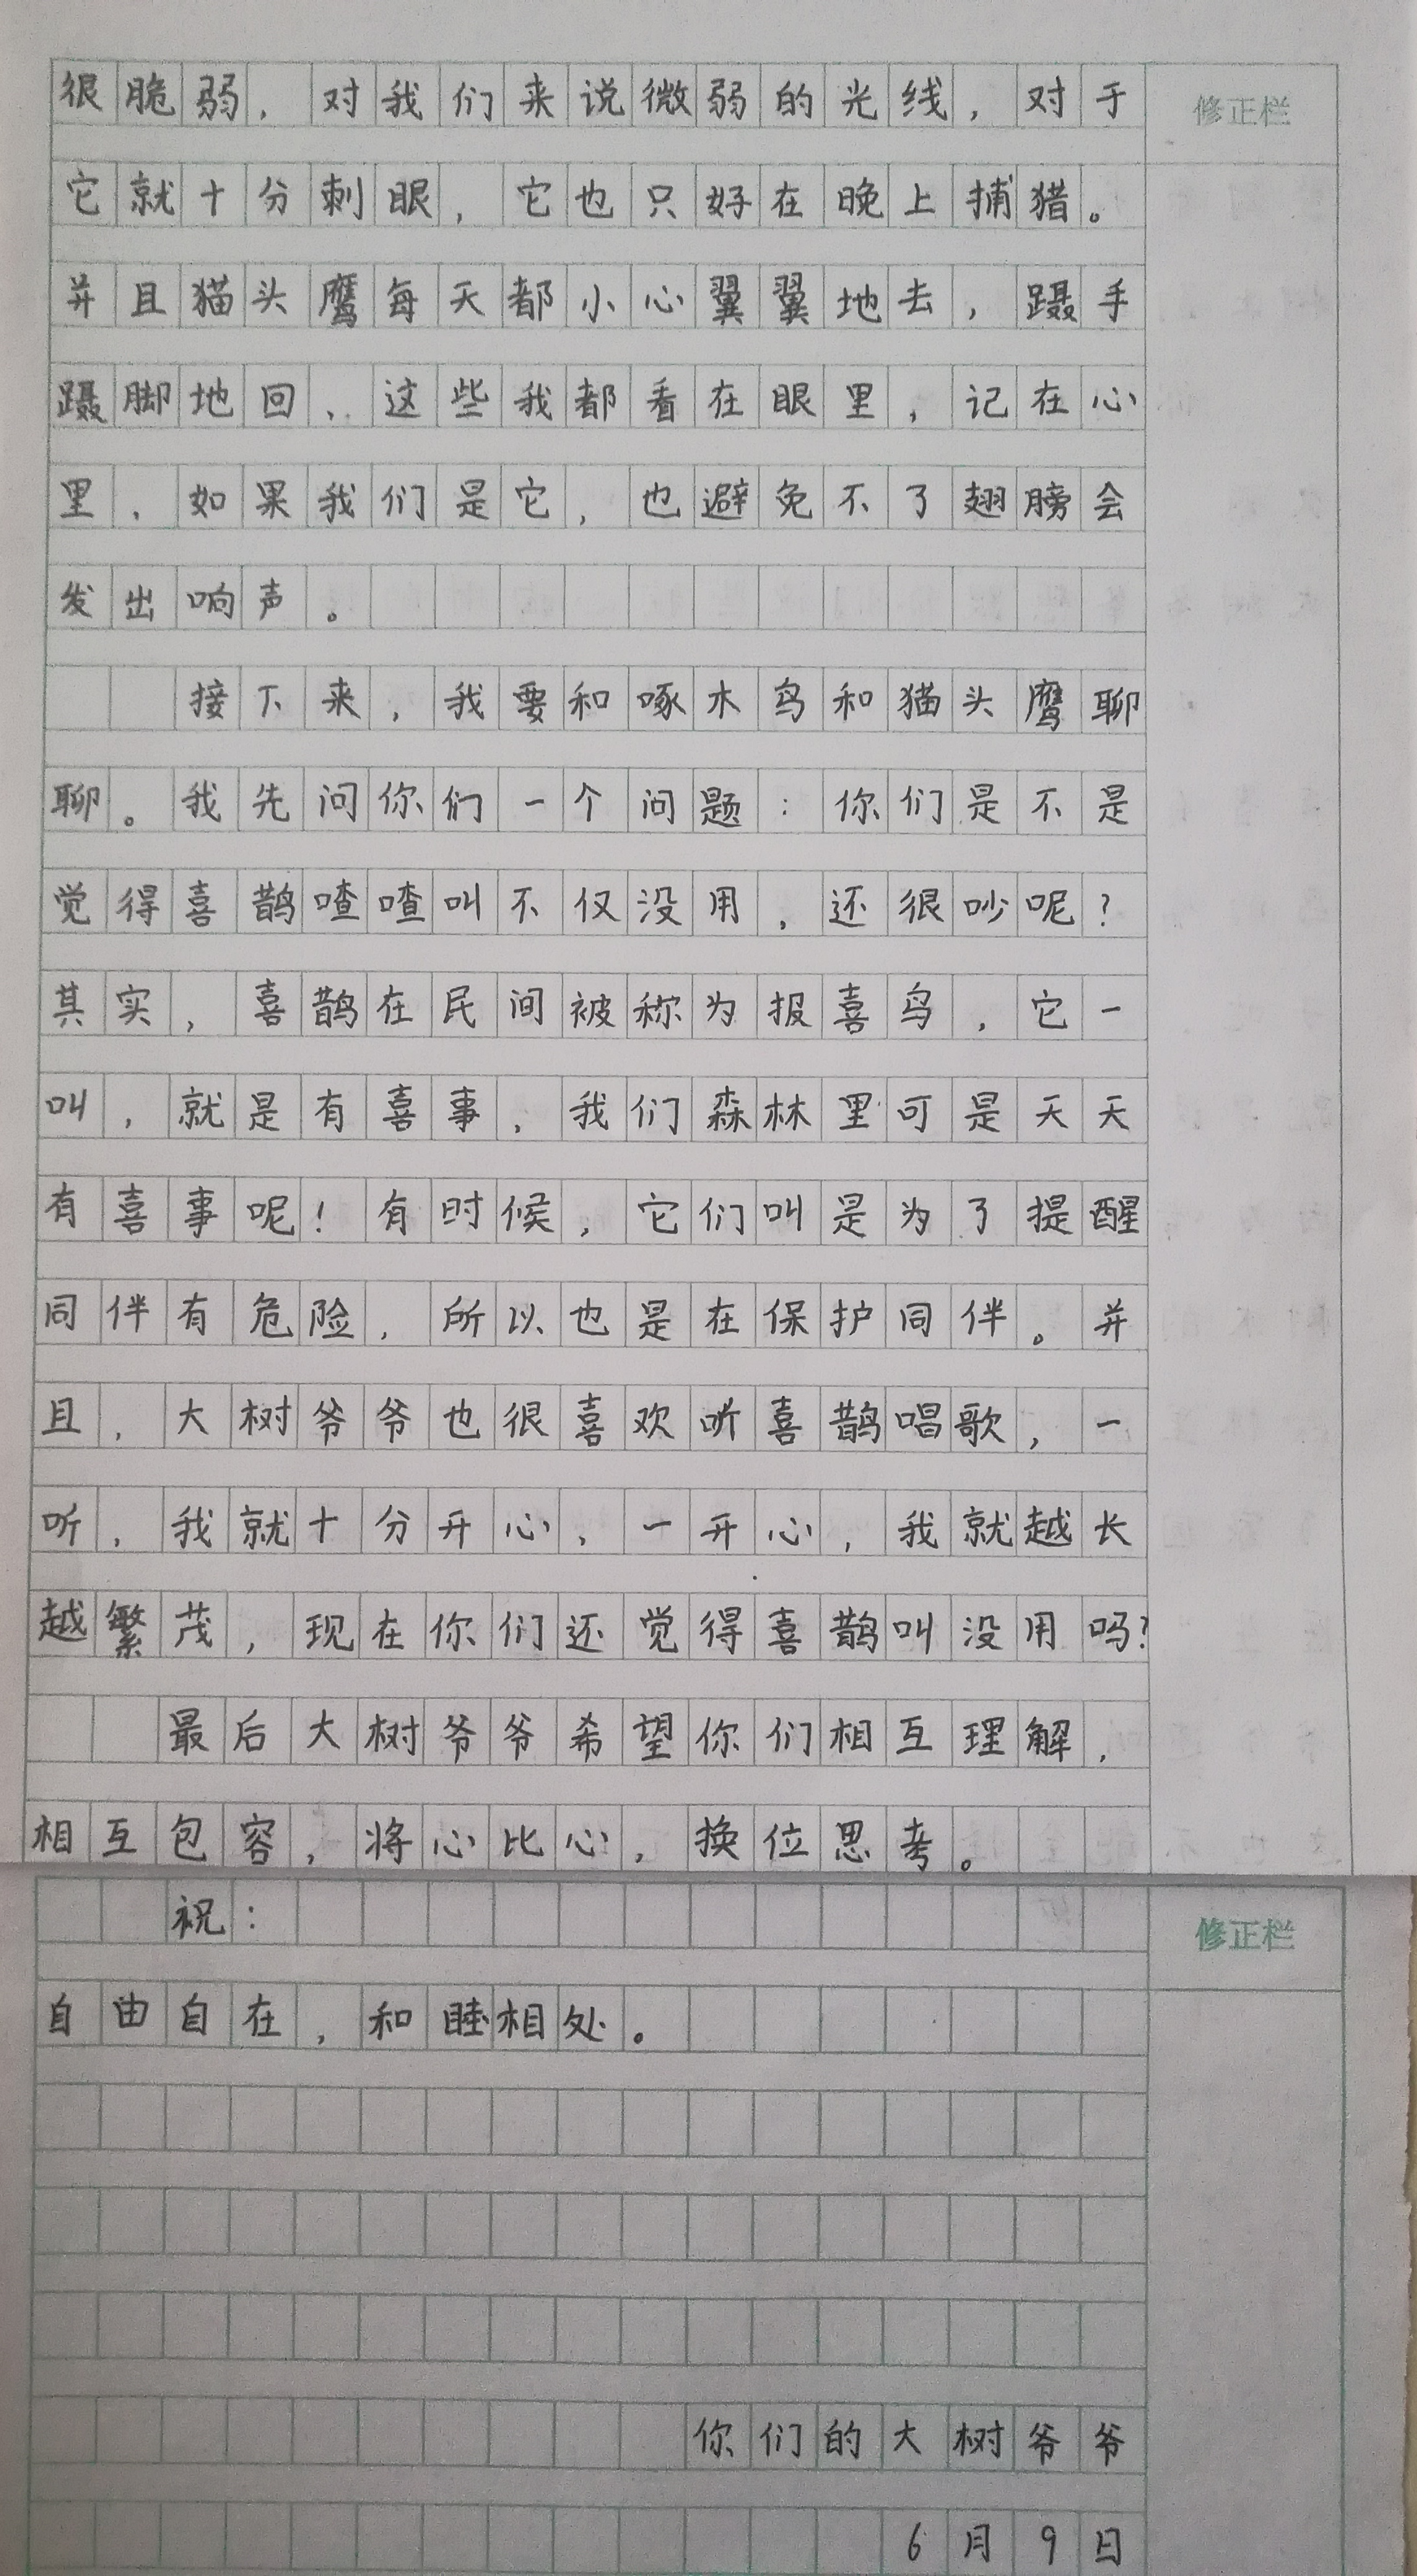 很脆弱，对我们来说微弱的光线，对于
修正栏
它就十分刺眼，它也只好在晚上捕猎。
并且猫头鹰每天都小心翼翼地去，蹑手
蹑脚地回，这些我都看在眼里，记在心
里，如果我们是它，也避免不了翅膀会
发出响声。
接下来，我要和啄木鸟和猫头鹰聊
聊。我先问你们一个问题：你们是不是
觉得喜鹊喳喳叫不仅没用，还很吵呢？
其实，喜鹊在民间被称为报喜鸟，它一
叫，就是有喜事，我们森林里可是天天
有喜事呢！有时候，它们叫是为了提醒
同伴有危险，所以也是在保护同伴。并
且，大树爷爷也很喜欢听喜鹊唱歌，一
听，我就十分开心，一开心，我就越长
越繁茂，现在你们还觉得喜鹊叫没用吗？
最后大树爷爷希望你们相互理解，
相互包容，将心比心，换位思考。
祝：
修正栏
自由自在，和睦相处。
你们的大树爷爷
6月9日